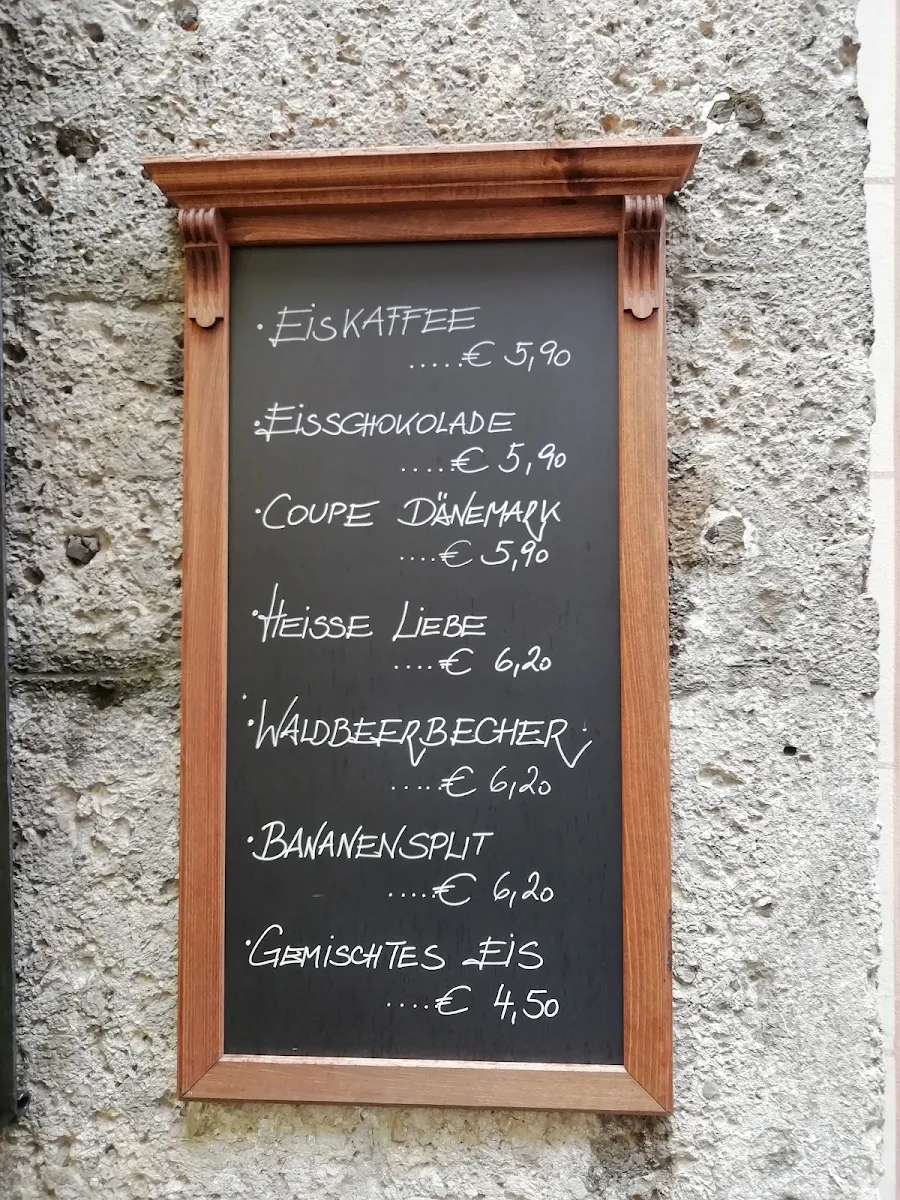 · EISKAFFEE
.....€ 5,90
· EISSCHOKOLADE
.....€ 5,90
· COUPE DÄNEMARK
....€ 5,90
· HEISSE LIEBE
....€ 6,20
· WALDBEERBECHER
....€ 6,20
· BANANENSPLIT
.....€ 6,20
· GEMISCHTES EIS
....€ 4,50